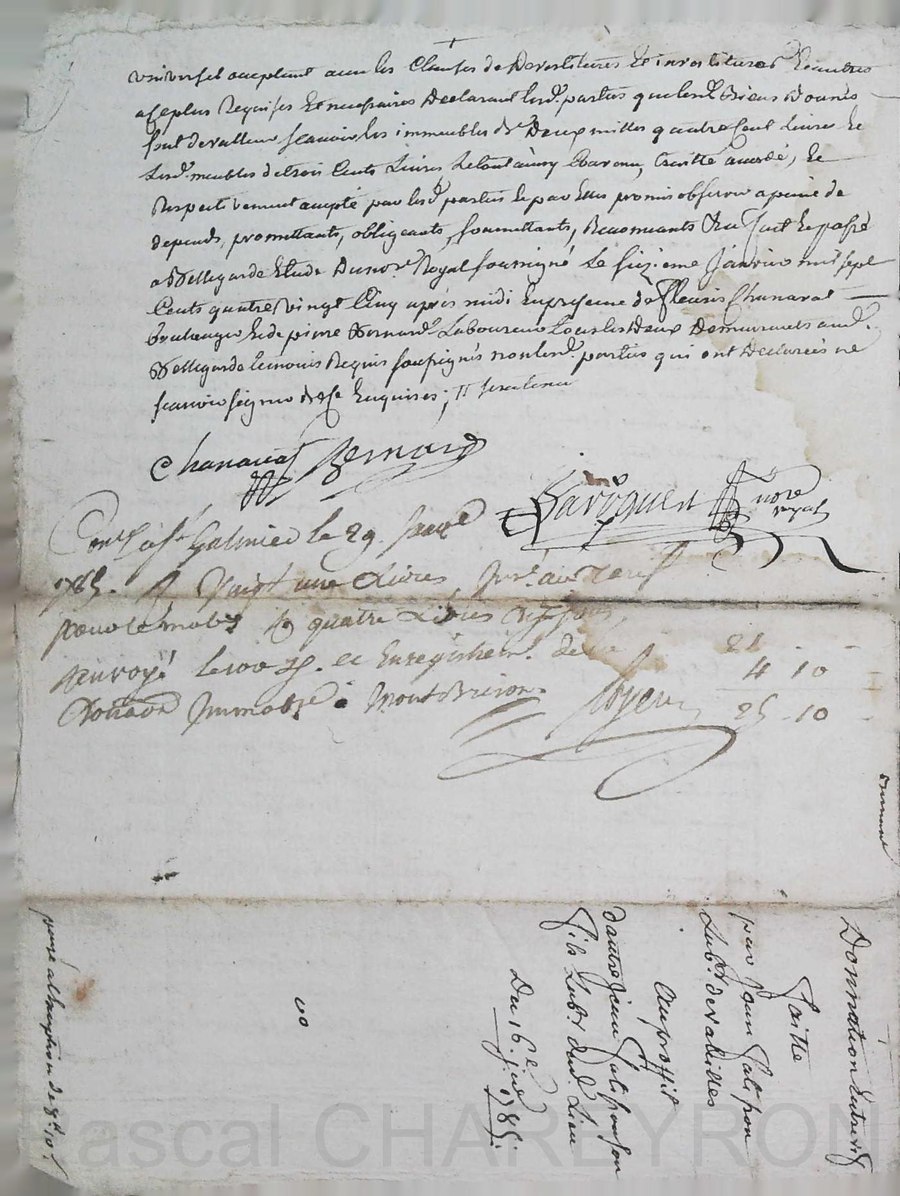 universel acceptant avec les Clauses de Devestitures Et investitures Et autres
a ce plus Requises Et necessaires Declarant lesd. parties que lesd. Biens donnés
sont de valleur scavoir les immeubles de Deux milles quatre Cent Livres Et
Lesd. meubles de trois Cents Livres Le tout ainsy Convenu, traitté accordé, Et
Respectivement accepté par lesd. parties Et par Elles promis observer a peine de
depends, promettants, obligeants, soumettants, Renonceants &c fait Et passé
a Bellegarde Etude Du nore. Royal soussigné Le seizieme Janvier mil sept
Cents quatre vingt Cinq après midi En presence de Fleuris Chanavat
boulanger Et de pierre Bernard Laboureur tous les Deux Demeurants aud.
Bellegarde temoins Requis soussignés non lesd. parties qui ont Declarées ne
scavoir signer de ce Enquises;
Chanavat Bernard
Laroque nore
royal
Con.lé a St Galmier le 29. Janv.
1785. R vingt une Livres,
pour le mob. & quatre Livres dix sous,
renvoyé le 100 d. et Enregistrem. de la
Donaon Immobre à Montbrison.
21
4 10
25 - 10
Donnation Entrevifs
faitte
par Jean
Labr. de
Au proffit
d'autre Jean son
fils Labr. dud. Lieu
Du 16.e jer. 1785
Pascal CHAREYRON